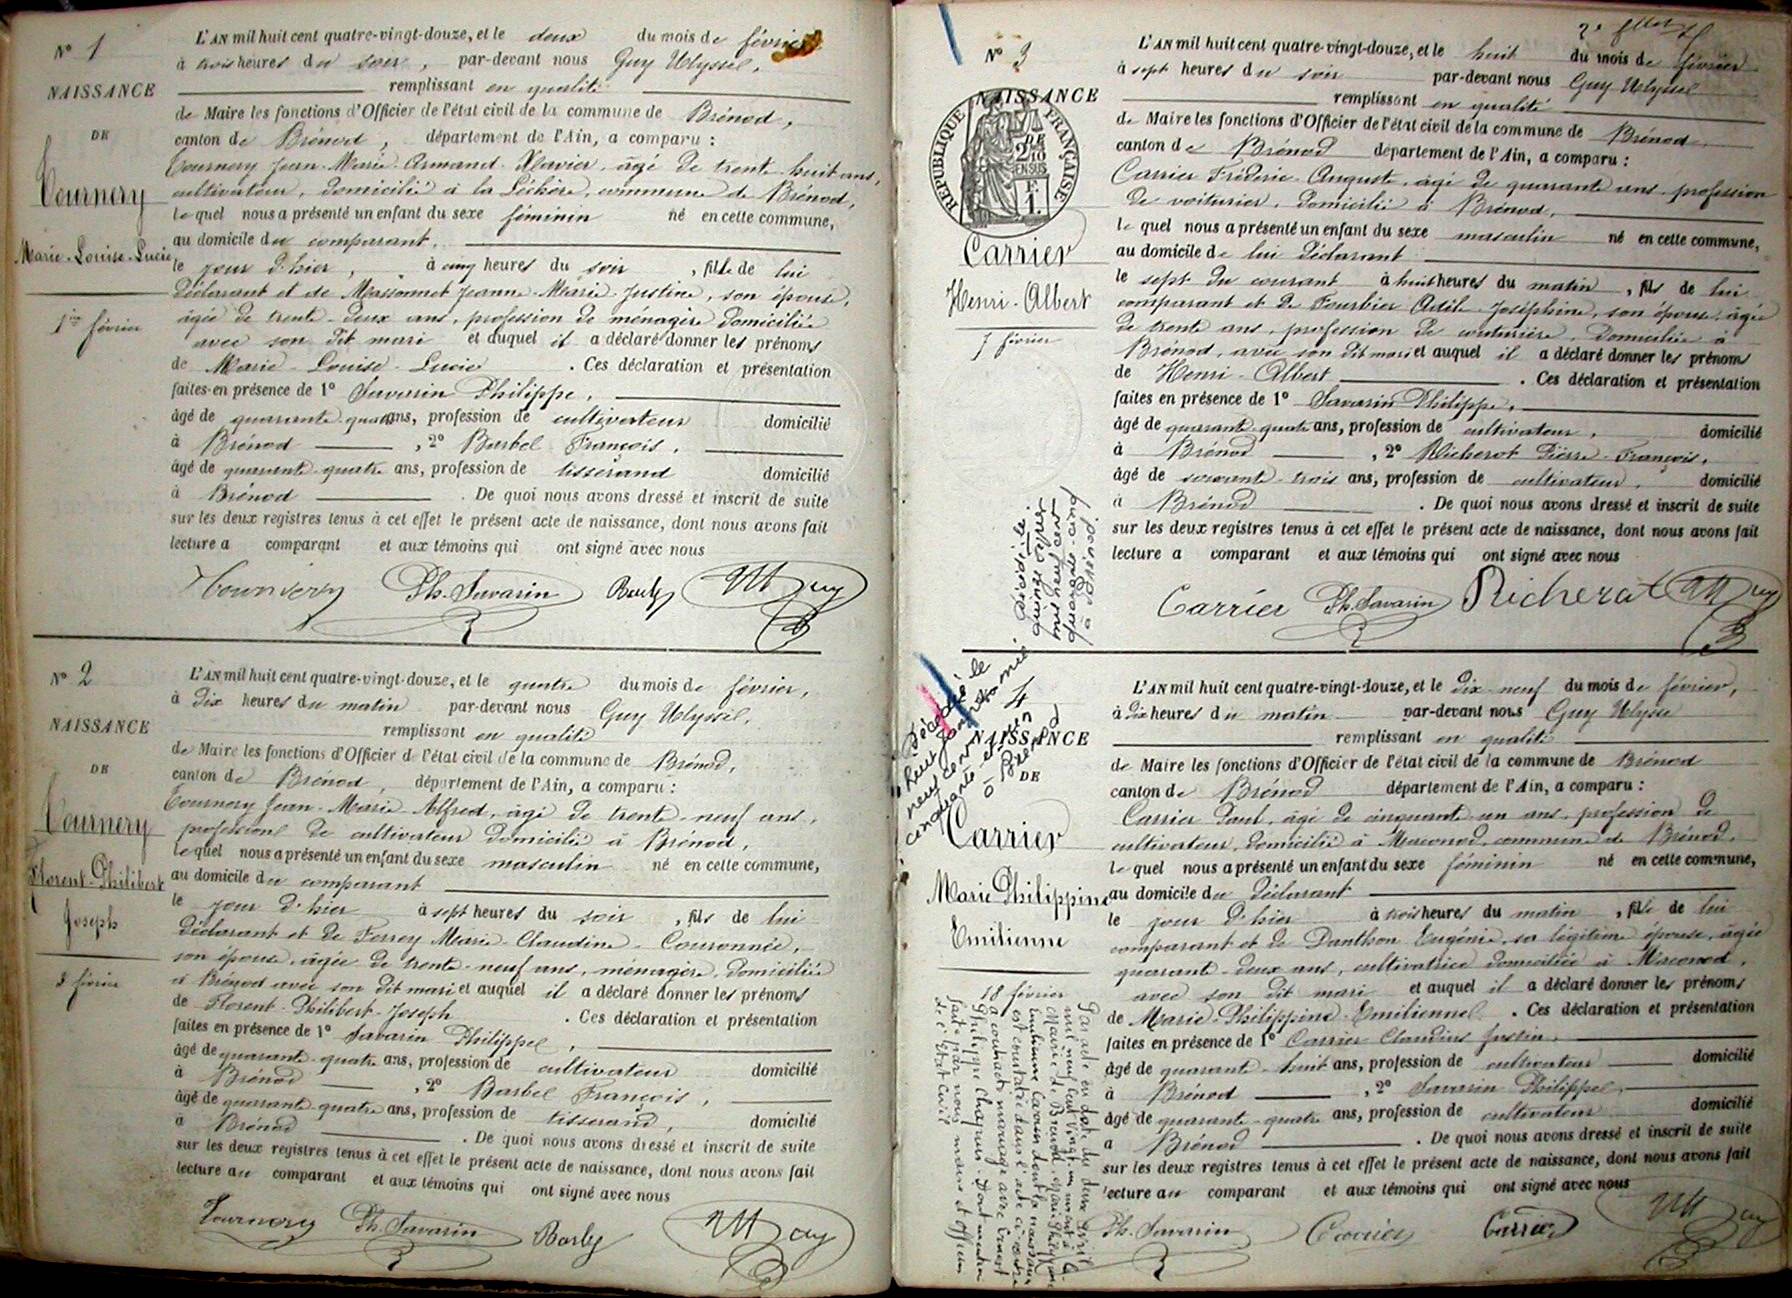 N° 1
NAISSANCE
DE
Tournery
Marie-Louise-Lucie
1er février
L'AN mil huit cent quatre-vingt-douze, et le deux du mois de février
à trois heures du soir, par-devant nous Guy Ulysse,
remplissant en qualité
de Maire les fonctions d'Officier de l'état civil de la commune de Brénod,
canton de Brénod, département de l'Ain, a comparu :
Tournery Jean-Marie-Armand-Xavier, âgé de trente-huit ans,
cultivateur, domicilié à la Léchère, commune de Brénod,
lequel nous a présenté un enfant du sexe féminin né en cette commune,
au domicile du comparant,
le jour d'hier, à cinq heures du soir, fille de lui
déclarant et de Massonnet Jeanne-Marie-Justine, son épouse,
âgée de trente-deux ans, profession de ménagère domiciliée
avec son dit mari et auquel il a déclaré donner les prénoms
de Marie-Louise-Lucie. Ces déclaration et présentation
faites en présence de 1° Savarin Philippe,
âgé de quarante-quatre ans, profession de cultivateur domicilié
à Brénod, 2° Barbel François,
âgé de quarante-quatre ans, profession de tisserand domicilié
à Brénod. De quoi nous avons dressé et inscrit de suite
sur les deux registres tenus à cet effet le présent acte de naissance, dont nous avons fait
lecture a comparant et aux témoins qui ont signé avec nous
Ph. Savarin
N° 2
NAISSANCE
DE
Tournery
Florent-Philibert
Joseph
3 février
L'AN mil huit cent quatre-vingt-douze, et le quatre du mois de février,
à dix heures du matin par-devant nous Guy Ulysse,
remplissant en qualité
de Maire les fonctions d'Officier de l'état civil de la commune de Brénod,
canton de Brénod, département de l'Ain, a comparu :
Tournery Jean-Marie-Alfred, âgé de trente-neuf ans,
profession de cultivateur domicilié à Brénod,
lequel nous a présenté un enfant du sexe masculin né en cette commune,
au domicile du comparant
le jour d'hier à sept heures du soir, fils de lui
déclarant et de Ferrey Marie-Claudine-Couronnée,
son épouse, âgée de trente-neuf ans, ménagère, domiciliée
à Brénod avec son dit mari et auquel il a déclaré donner les prénoms
de Florent-Philibert-Joseph. Ces déclaration et présentation
faites en présence de 1° Savarin Philippe,
âgé de quarante-quatre ans, profession de cultivateur domicilié
à Brénod, 2° Barbel François,
âgé de quarante-quatre ans, profession de tisserand, domicilié
à Brénod. De quoi nous avons dressé et inscrit de suite
sur les deux registres tenus à cet effet le présent acte de naissance, dont nous avons fait
lecture au comparant et aux témoins qui ont signé avec nous
Tournery Ph. Savarin
N° 3
NAISSANCE
RÉPUBLIQUE FRANÇAISE
2/10 EN SUS
F. 1.
Carrier
Henri-Albert
7 février
L'AN mil huit cent quatre-vingt-douze, et le huit du mois de février
à sept heures du soir par-devant nous Guy Ulysse
remplissant en qualité
de Maire les fonctions d'Officier de l'état civil de la commune de Brénod,
canton de Brénod département de l'Ain, a comparu :
Carrier Fréderic-Auguste, âgé de quarante ans, profession
de voiturier, domicilié à Brénod,
lequel nous a présenté un enfant du sexe masculin né en cette commune,
au domicile de lui déclarant
le sept du courant à huit heures du matin, fils de lui
comparant et de Joséphine, son épouse, âgée
de trente ans, profession de couturière, domiciliée à
Brénod, avec son dit mari et auquel il a déclaré donner les prénoms
de Henri-Albert. Ces déclaration et présentation
faites en présence de 1° Savarin Philippe,
âgé de quarante-quatre ans, profession de cultivateur, domicilié
à Brénod, 2° Richerot Pierre-François,
âgé de soixante-trois ans, profession de cultivateur, domicilié
à Brénod. De quoi nous avons dressé et inscrit de suite
sur les deux registres tenus à cet effet le présent acte de naissance, dont nous avons fait
lecture a comparant et aux témoins qui ont signé avec nous
Carrier Ph. Savarin Richerot
Décédé le
quinze
mil neuf cent
quarante-cinq
à Brénod
4
NAISSANCE
DE
Carrier
Marie Philippine
Emilienne
18 février
Décédée le
neuf cent
cinquante et un
à Brénod
L'AN mil huit cent quatre-vingt-douze, et le dix-neuf du mois de février,
à dix heures du matin par-devant nous Guy Ulysse
remplissant en qualité
de Maire les fonctions d'Officier de l'état civil de la commune de Brénod
canton de Brénod département de l'Ain, a comparu :
Carrier Paul, âgé de cinquante-un ans, profession de
cultivateur, domicilié à Macconod, commune de Brénod,
lequel nous a présenté un enfant du sexe féminin né en cette commune,
au domicile du déclarant
le jour d'hier à trois heures du matin, fille de lui
comparant et de Danthon Eugénie, sa légitime épouse, âgée
quarante-deux ans, cultivatrice domiciliée à Macconod,
avec son dit mari et auquel il a déclaré donner les prénoms
de Marie-Philippine-Emilienne. Ces déclaration et présentation
faites en présence de 1° Carrier Claudius Justin,
âgé de quarante-huit ans, profession de cultivateur domicilié
à Brénod, 2° Savarin Philippe,
âgé de quarante-quatre ans, profession de cultivateur domicilié
à Brénod. De quoi nous avons dressé et inscrit de suite
sur les deux registres tenus à cet effet le présent acte de naissance, dont nous avons fait
lecture au comparant et aux témoins qui ont signé avec nous
Ph. Savarin Carrier Carrier
Par acte en date du deux avril
mil neuf cent vingt-un
Mairie de Brénod, Marie Philippine
Emilienne Carrier dont la naissance
est constatée dans l'acte ci-contre
a contracté mariage avec Ernest
Philippe Chapuis. Dont mention
faite par nous maire et officier
de l'Etat Civil